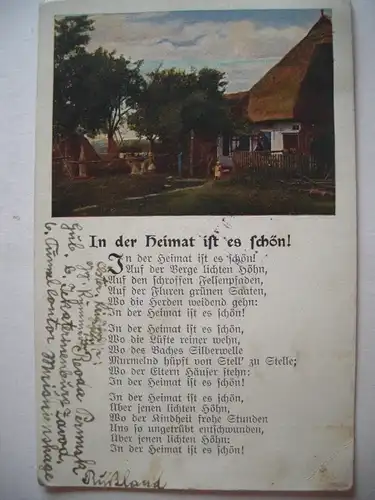 In der Heimat ist es schön!
In der Heimat ist es schön!
Auf der Berge lichten Höhn,
Auf den schroffen Felsenpfaden,
Auf der Fluren grünen Saaten,
Wo die Herden weidend gehn:
In der Heimat ist es schön!
In der Heimat ist es schön,
Wo die Lüfte reiner wehn,
Wo des Baches Silberwelle
Murmelnd hüpft von Stell' zu Stelle;
Wo der Eltern Häuser stehn:
In der Heimat ist es schön!
In der Heimat ist es schön,
Über jenen lichten Höhn,
Wo der Kindheit frohe Stunden
Uns so ungetrübt entschwunden,
Über jenen lichten Höhn:
In der Heimat ist es schön!
Rußland